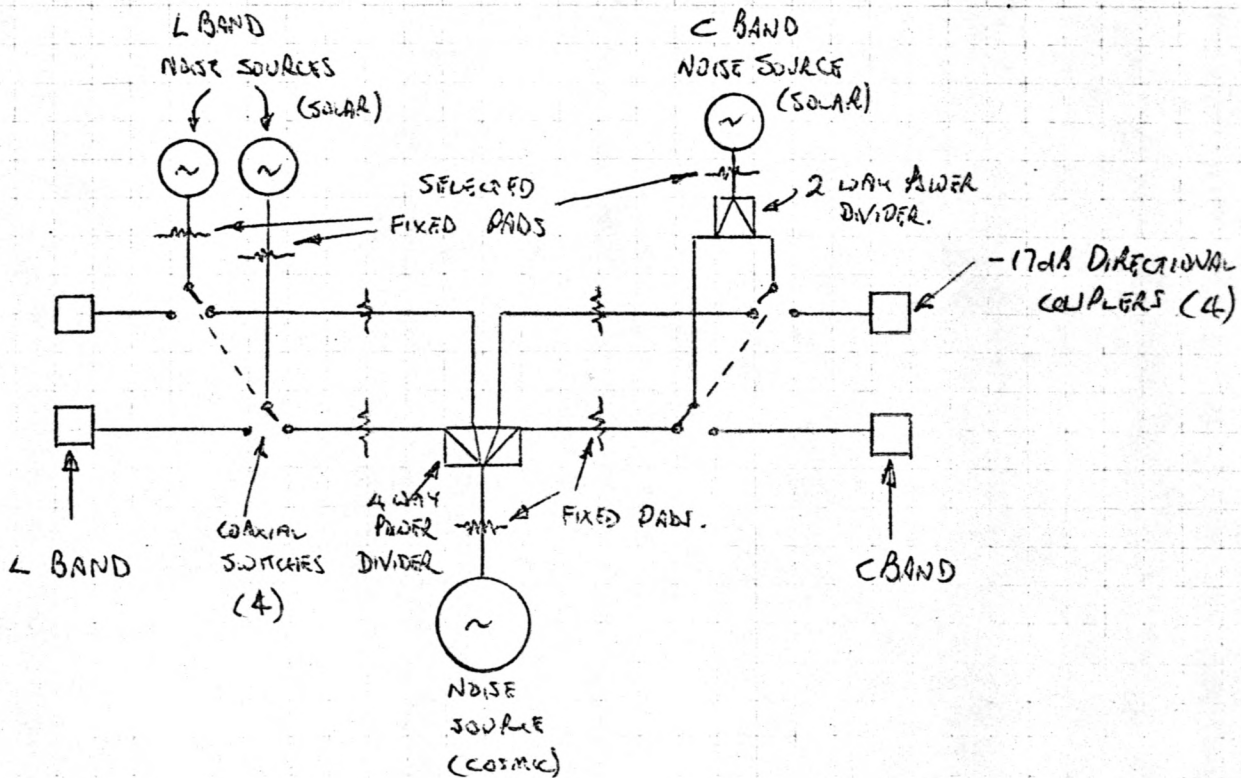 L BAND
NOISE SOURCES
(SOLAR)
C BAND
NOISE SOURCE
(SOLAR)
SELECTED
FIXED PADS
2 WAY POWER
DIVIDER.
-17dB DIRECTIONAL
COUPLERS (4)
L BAND
COAXIAL
SWITCHES
(4)
4 WAY
POWER
DIVIDER
FIXED PADS.
C BAND
NOISE
SOURCE
(COSMIC)